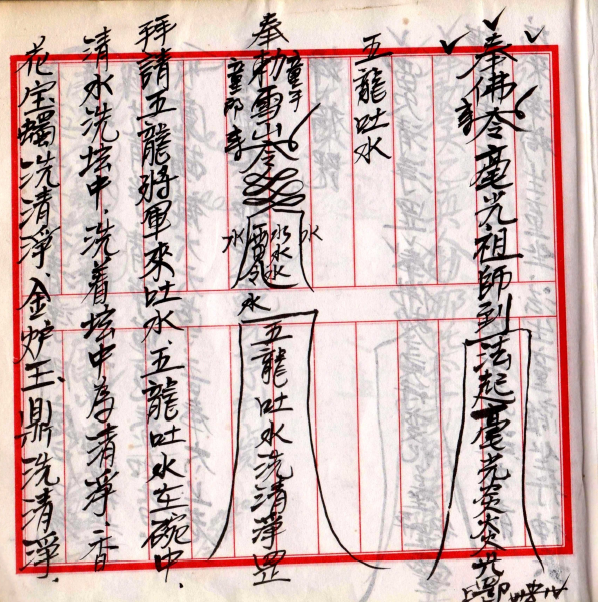 奉佛令毫光祖師到法起毫光炎炎
五龍吐水
奉勅雪山令
童子
童郎
水 水水水 水
水
五龍吐水洗清淨罡
拜請五龍將軍來吐水、五龍吐水在碗中、
清水洗坛中、洗着坛中為清淨、香
花宝燭洗清淨、金炉玉鼎洗清淨、